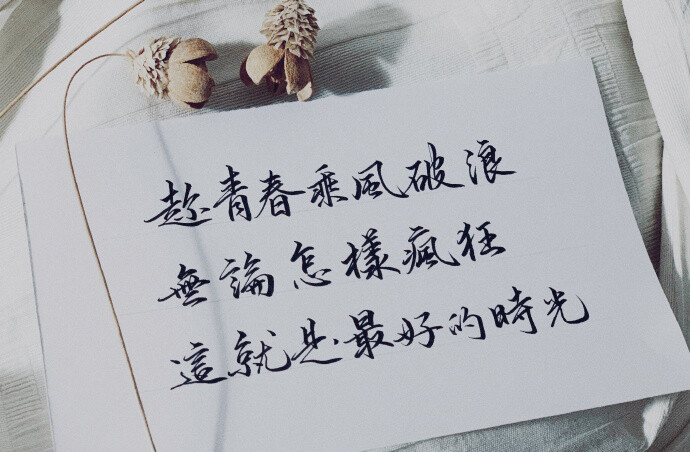 趁青春乘風破浪
無論怎樣瘋狂
這就是最好的時光